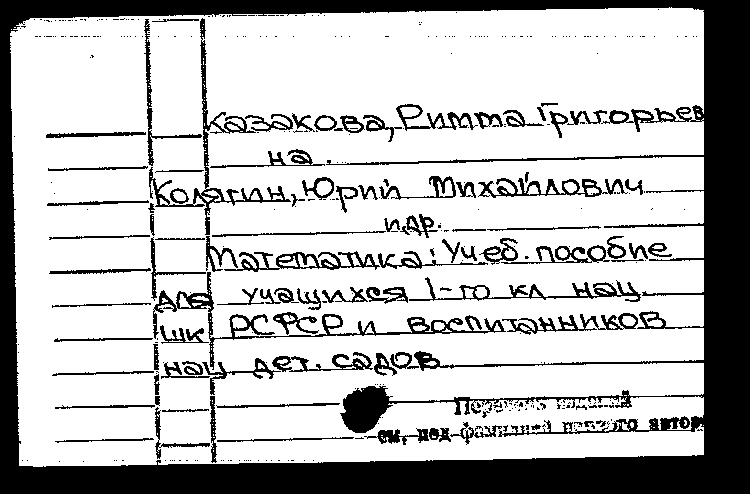 Казакова, Римма Григорьев
на.
Колягин, Юрий Михайлович
и др.
Математика: Учеб. пособие
для учащихся 1-го кл нац.
шк РСФСР и воспитанников
нац. дет. садов
Перечень изданий
см. под фамилией первого автора